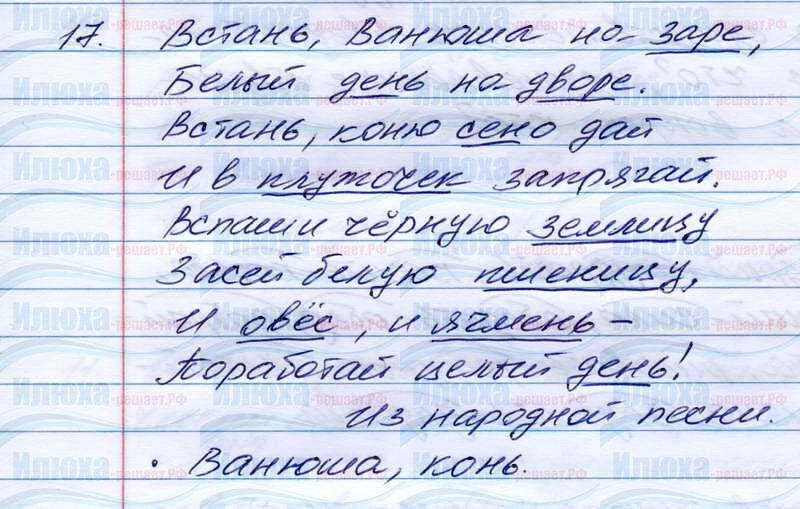 17. Встань, Ванюша на заре,
Белый день на дворе.
Встань, коню сено дай
И в плуточек запрягай.
Вспаши чёрную землицу
Засей белую пшеницу,
И овёс, и ячмень –
Поработай целый день!
Из народной песни.
· Ванюша, конь.